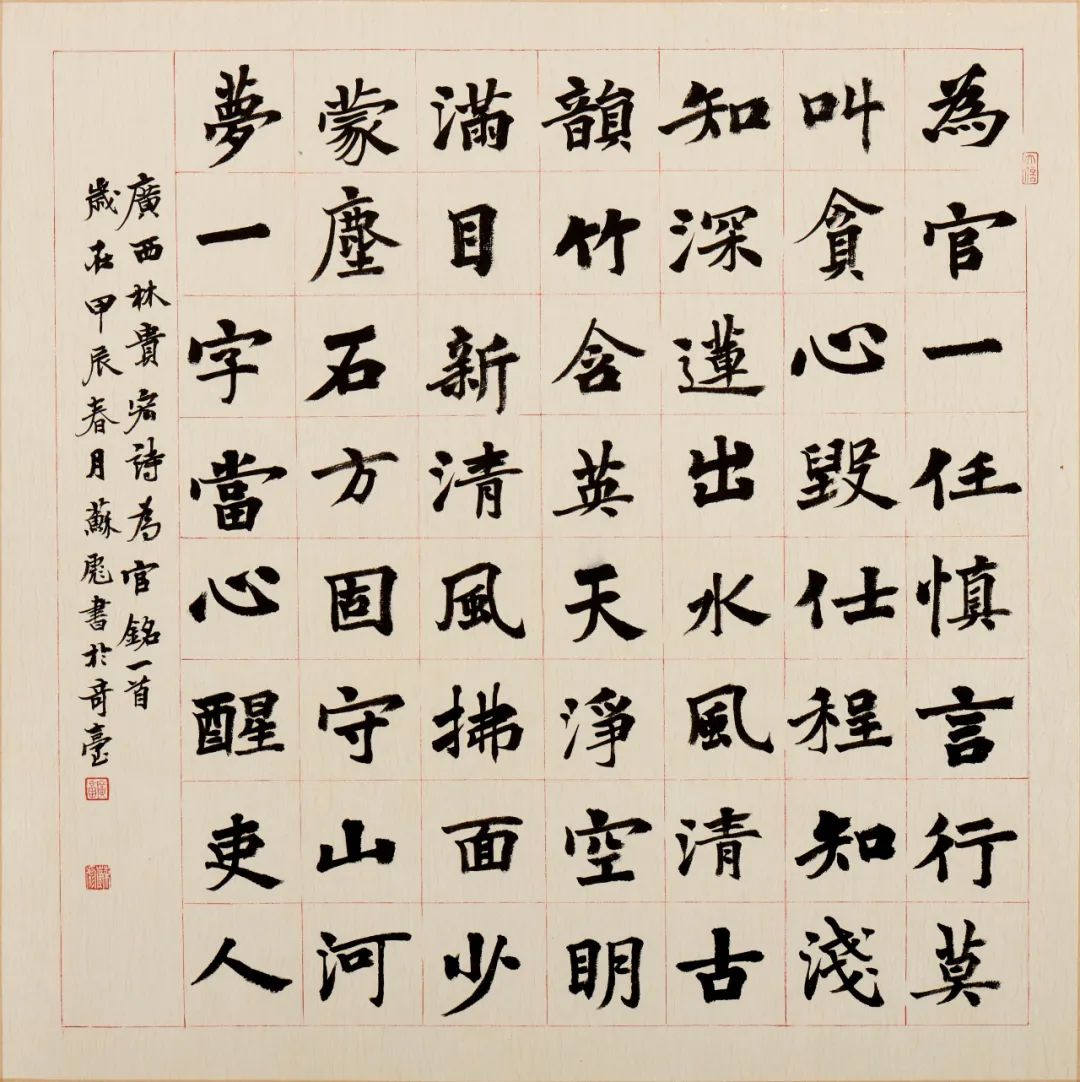 為官一任慎言行莫
叫貪心毀仕程知淺
知深蓮出水風清古
韻竹含英天淨空明
滿目新清風拂面少
蒙塵石方固守山河
夢一字當心醒吏人
廣西林貴宏詩為官銘一首
歲在甲辰春月蘇彪書於奇臺